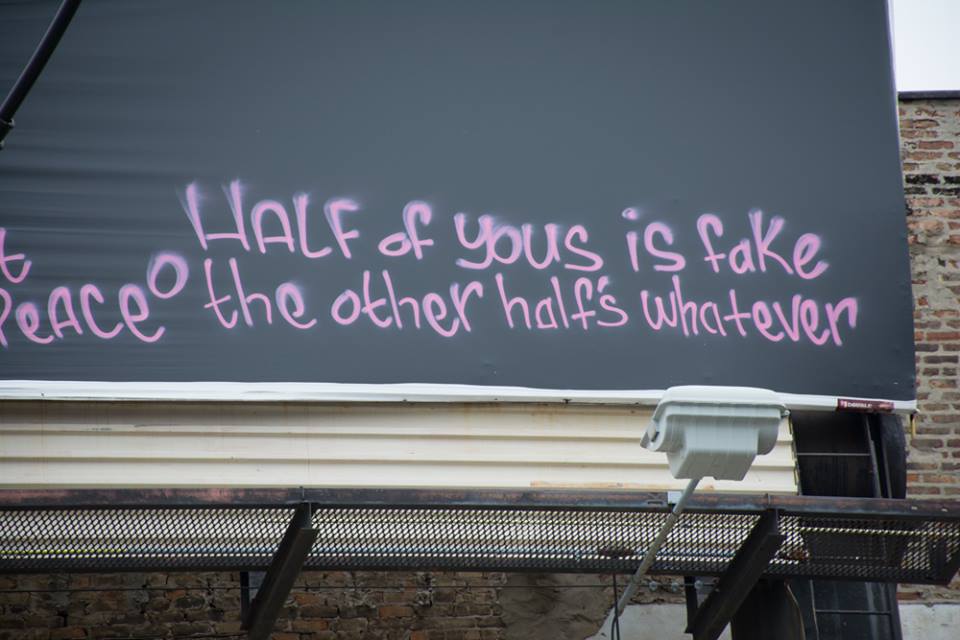 t
Peace
Half of yous is fake
the other half's whatever